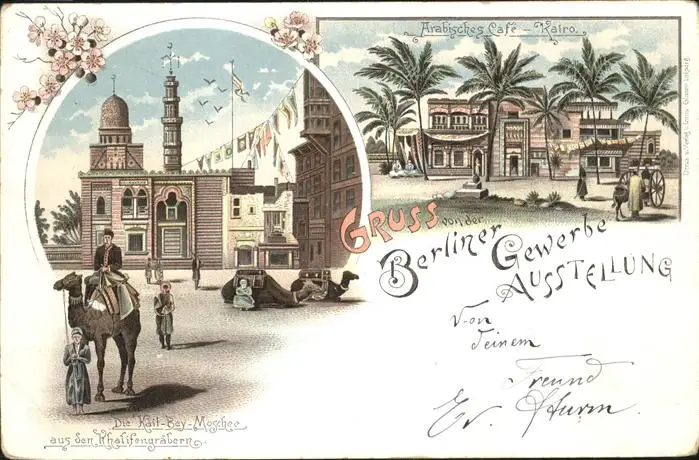 Arabisches Café – Kairo.
GRUSS von der
Berliner Gewerbe
AUSSTELLUNG
Von
deinem
Freund
Sturm
Die Kait-Bey-Moschee
aus den Khalifengräbern.